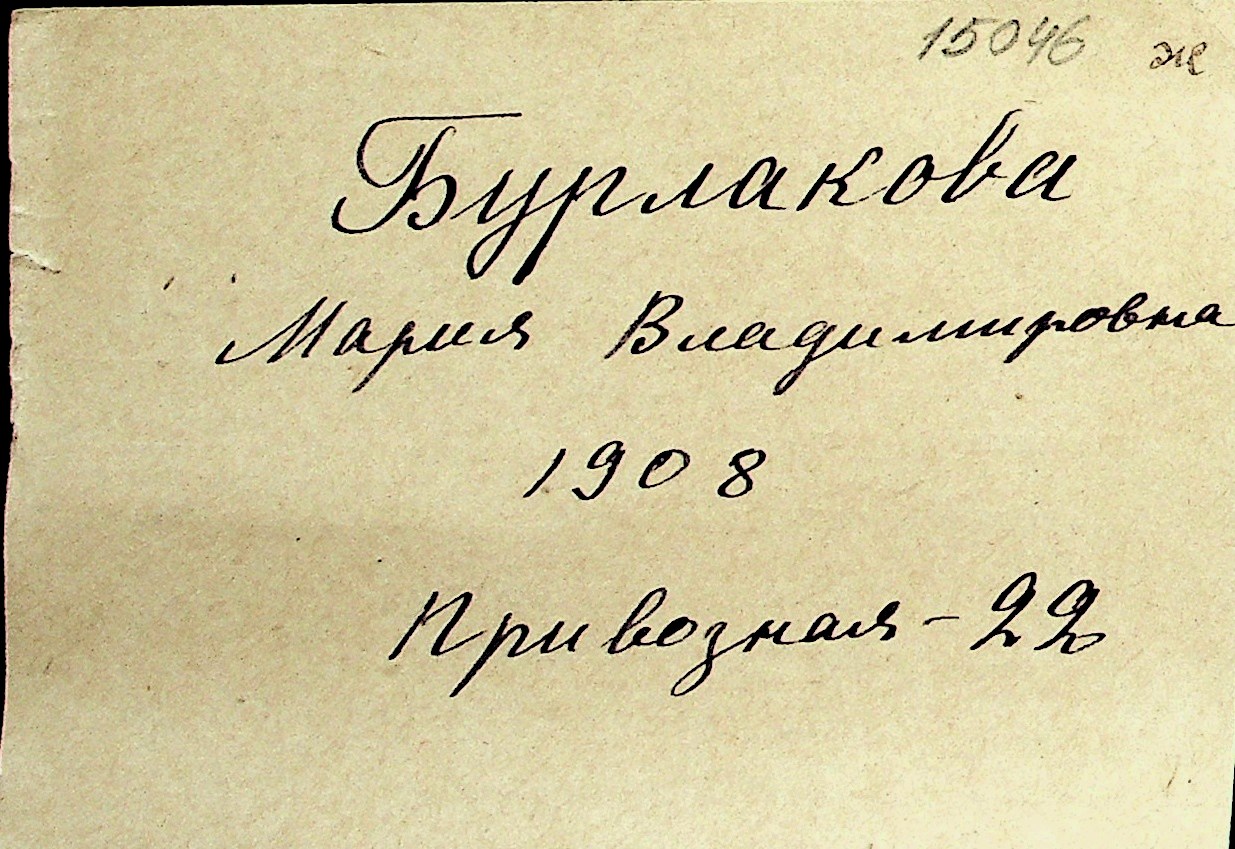 15046 ж
Бурлакова
Мария Владимировна
1908
Привозная - 22